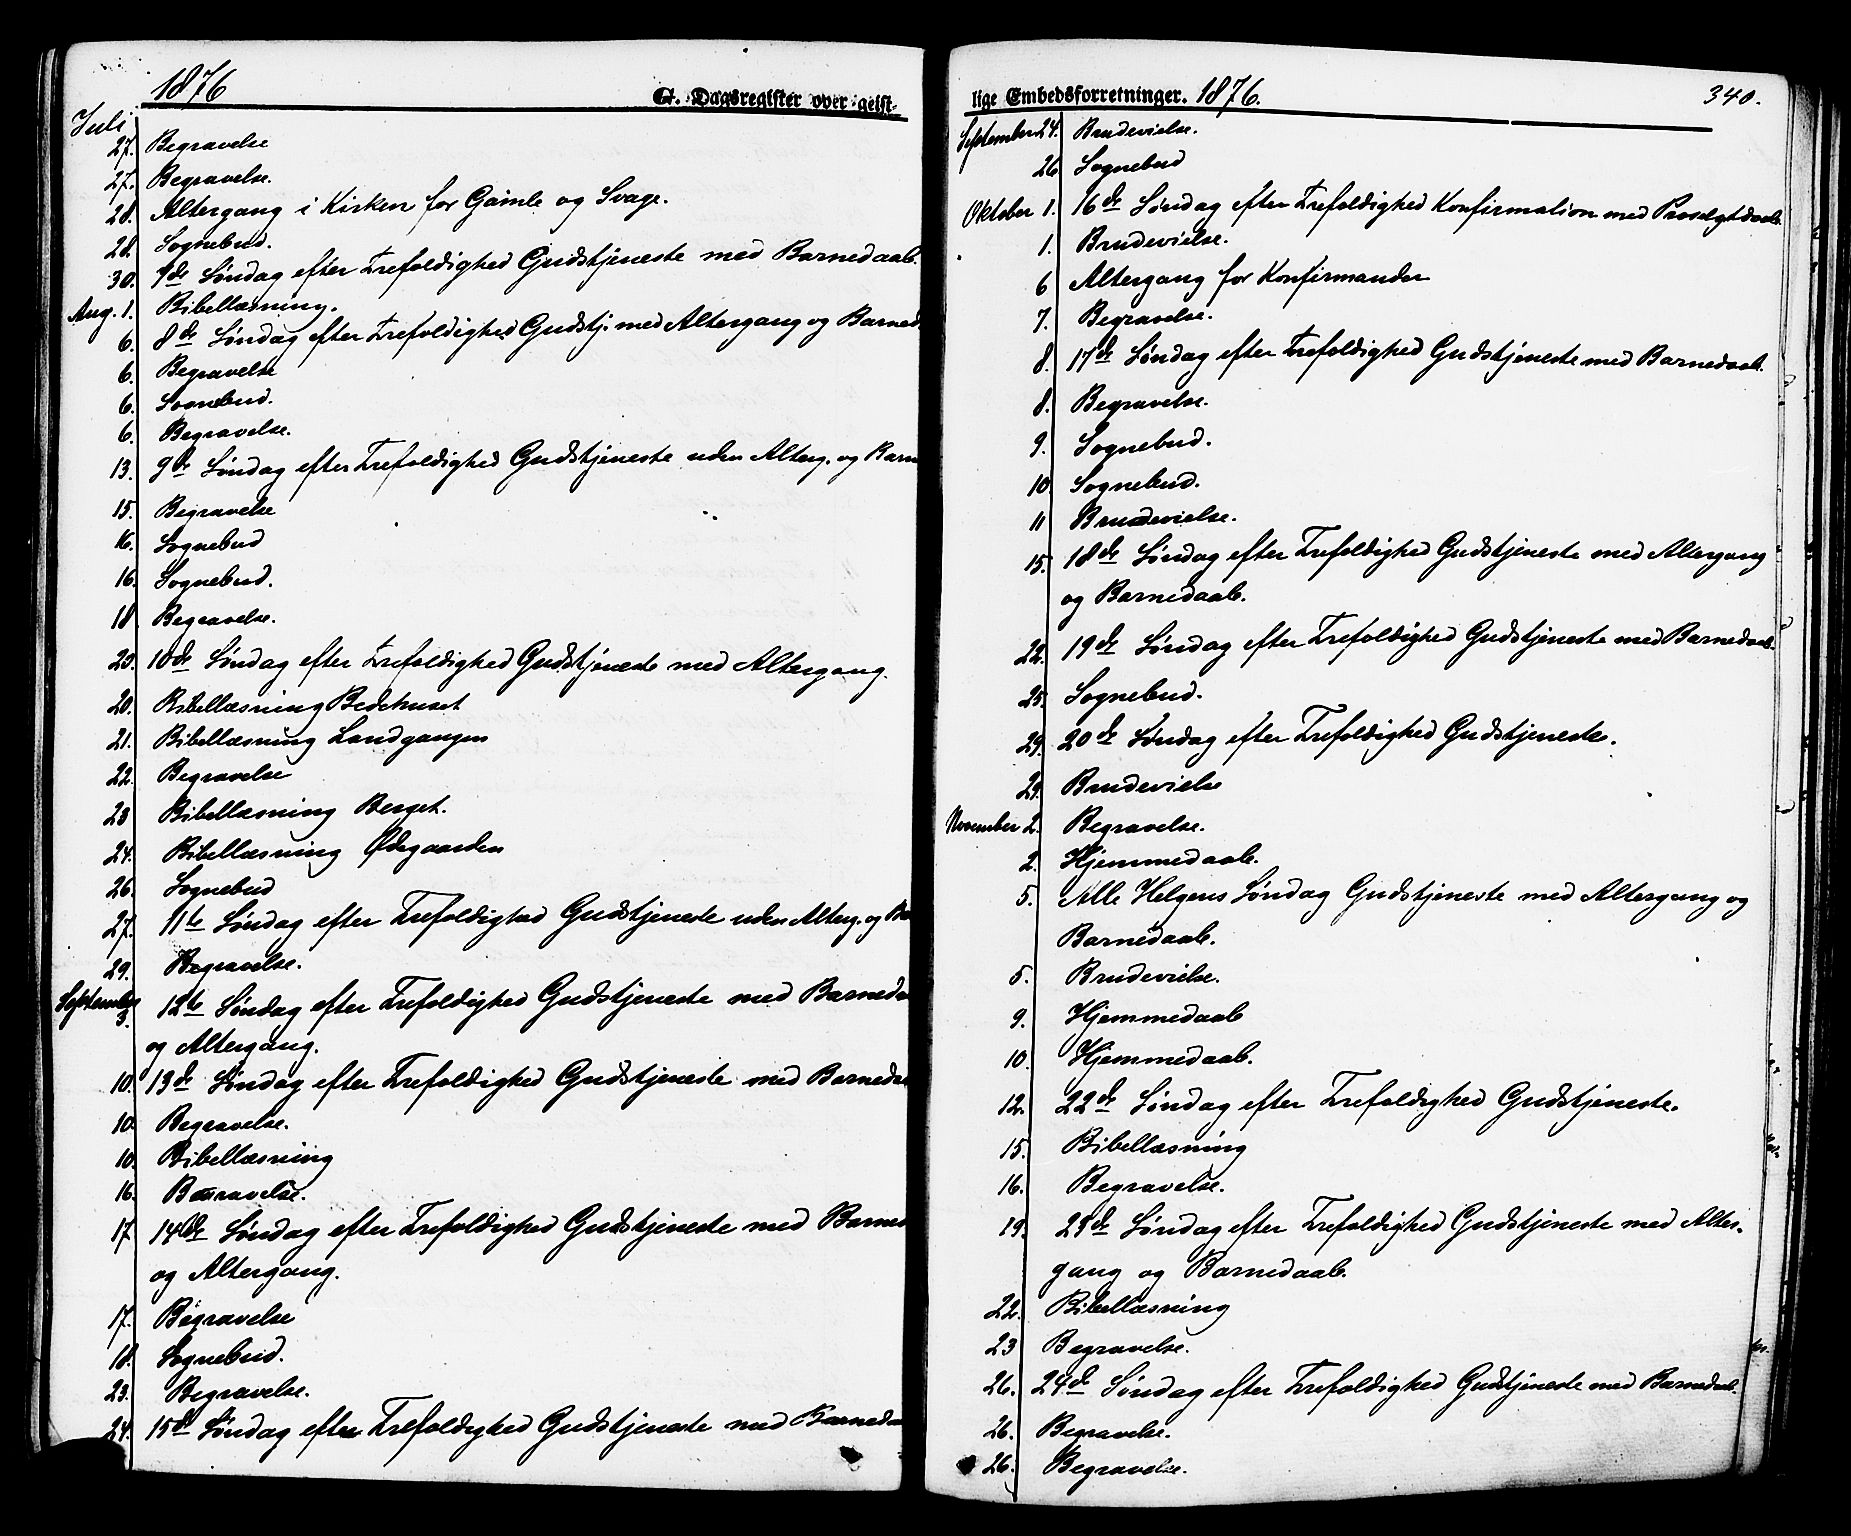 1876
G. Dagsregister over geist-
Juli
27. Begravelse
27. Begravelse.
28. Altergang i Kirken for Gamle og Svage.
28. Sognebud.
30. 7de Søndag efter Trefoldighed Gudstjeneste med Barnedaab.
Aug. 1. Bibellæsning.
6. 8de Søndag efter Trefoldighed Gudstj. med Altergang og Barned
6. Begravelse
6. Sognebud.
6. Begravelse.
13. 9de Søndag efter Trefoldighed Gudstjeneste uden Alterg. og Barn
15. Begravelse
16. Sognebud
16. Sognebud.
18 Begravelse.
20. 10de Søndag efter Trefoldighed Gudstjeneste med Altergang.
20. Bibellæsning Bedehuset
21. Bibellæsning Landgangen
22. Begravelse
23 Bibellæsning Berget.
24. Bibellæsning Ødegaarden
26. Sognebud
27. 11te Søndag efter Trefoldighed Gudstjeneste uden Alterg. og Ba
29. Begravelse.
September
3. 12te Søndag efter Trefoldighed Gudstjeneste med Barneda
og Altergang.
10. 13de Søndag efter Trefoldighed Gudstjeneste med Barneda
10. Begravelse.
10. Bibellæsning
16. Begravelse.
17 14de Søndag efter Trefoldighed Gudstjeneste med Barned
og Altergang.
17. Begravelse
18. Sognebud.
23. Begravelse.
24. 15de Søndag efter Trefoldighed Gudstjeneste med Barneda
lige Embedsforretninger. 1876.
340.
September 24. Brudevielse.
26 Sognebud
Oktober 1. 16de Søndag efter Trefoldighed Konfirmation med Proselytdaab.
1. Brudevielse.
6 Altergang for Konfirmander
7. Begravelse.
8. 17de Søndag efter Trefoldighed Gudstjeneste med Barnedaab.
8. Begravelse.
9. Sognebud.
10 Sognebud.
11 Brudevielse.
15. 18de Søndag efter Trefoldighed Gudstjeneste med Altergang
og Barnedaab.
22. 19de Søndag efter Trefoldighed Gudstjeneste med Barnedaab.
25. Sognebud.
29. 20de Søndag efter Trefoldighed Gudstjeneste.
29. Brudevielse
November 2. Begravelse.
2. Hjemmedaab.
5. Alle Helgens Søndag Gudstjeneste med Altergang og
Barnedaab.
5. Brudevielse.
9. Hjemmedaab
10. Hjemmedaab.
12. 22de Søndag efter Trefoldighed Gudstjeneste.
15. Bibellæsning
16. Begravelse.
19. 23de Søndag efter Trefoldighed Gudstjeneste med Alter-
gang og Barnedaab.
22. Bibellæsning
23 Begravelse.
26. 24de Søndag efter Trefoldighed Gudstjeneste med Barnedaab.
26. Begravelse.
26. Begravelse.